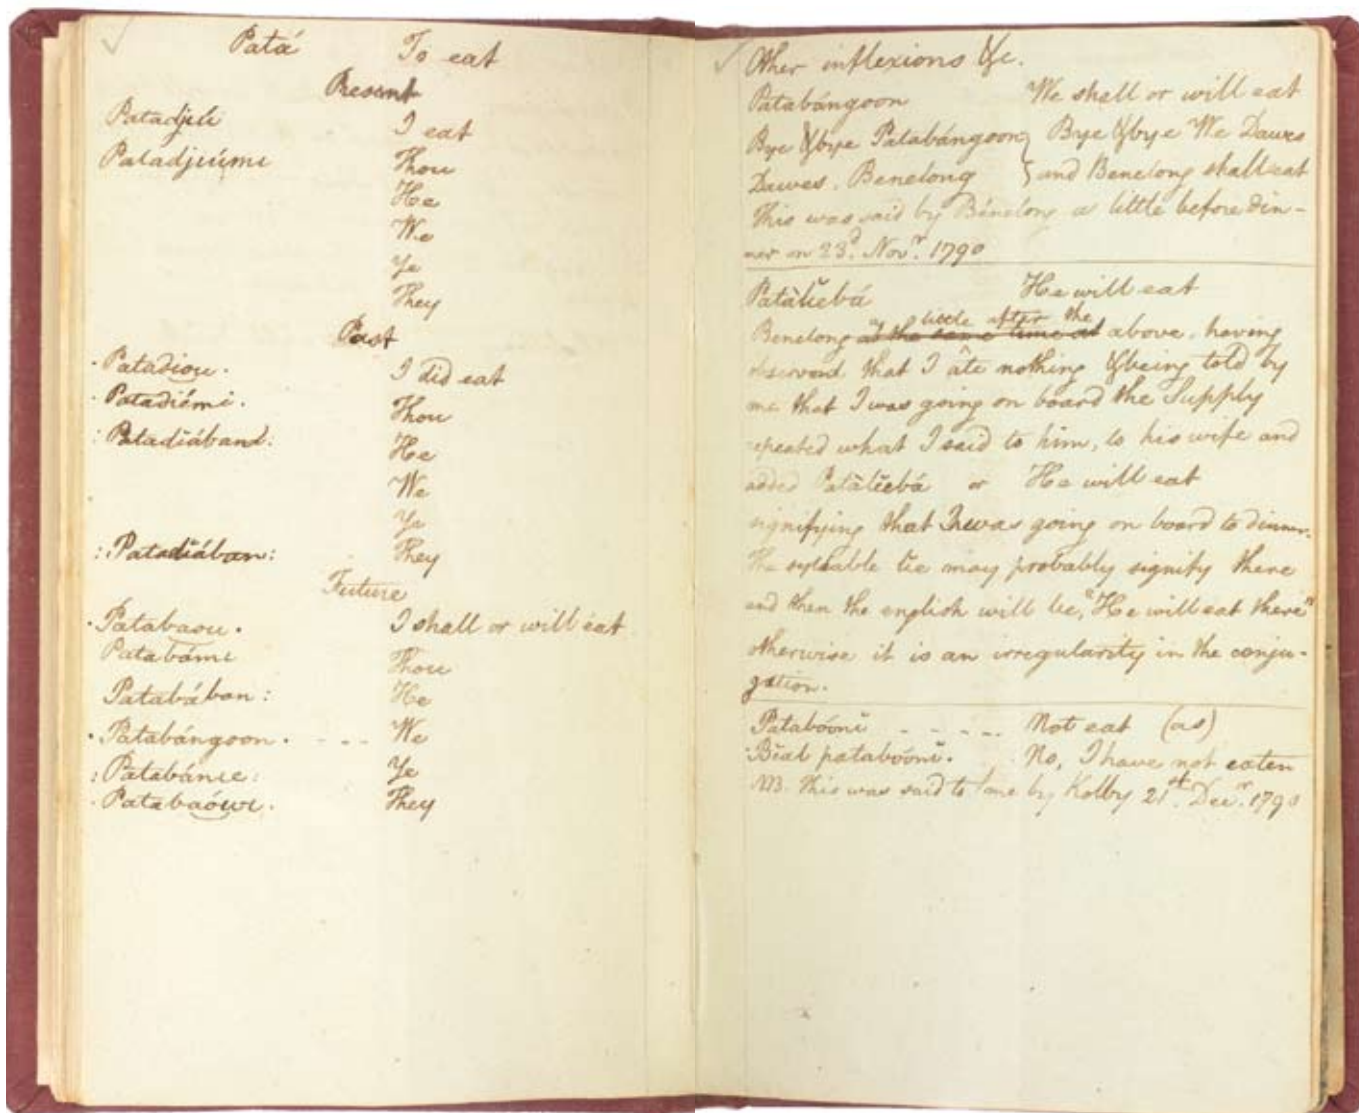 Patá To eat
Present
Patadjeli I eat
Patadjeúmi Thou
He
We
Ye
They
Past
Patadiou. I did eat
Patadiémi. Thou
Patadiában: He
We
Ye
:Patadiában: They
Future
.Patabaou. I shall or will eat
Patabámi Thou
Patabában: He
.Patabángoon. - - - We
:Patabánie: Ye
.Patabaóuwi. They
Other inflexions &c.
Patabángoon We shall or will eat
Bye & bye Patabángoon } Bye & bye We Dawes
Dawes, Benelong } and Benelong shall eat
This was said by Benelong a little before din-
ner on 23.d Nov.r 1790
Patàliebá He will eat
Benelong at the same time as a little after the above, having
observed that I ate nothing & being told by
me that I was going on board the Supply
repeated what I said to him, to his wife and
added Patàliebá or He will eat
signifying that I was going on board to dinner.
The syllable lie may probably signify there
and then the english will be, "He will eat there"
otherwise it is an irregularity in the conju-
gation.
Patabóoni - - - - - Not eat (as)
.Bial patabóoni. No, I have not eaten
NB. This was said to me by Kolby 21st. Dec.r 1790